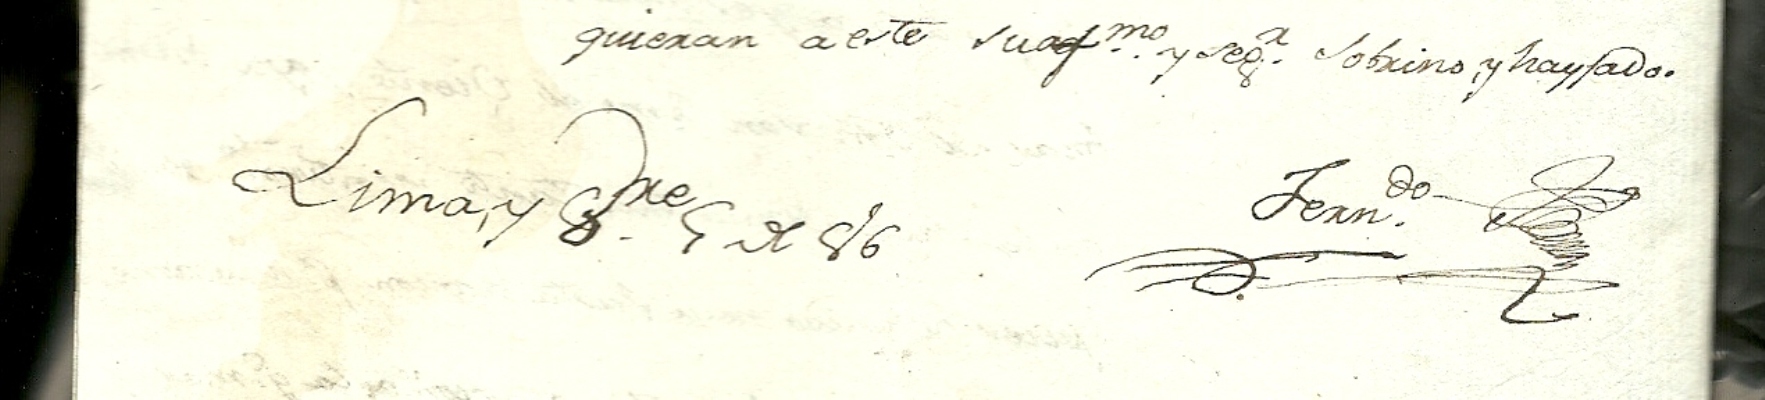 quieran a este su af.mo y seg.r sobrino, y hayjado.
Lima, y 8.bre 5 de 816
Fern.do